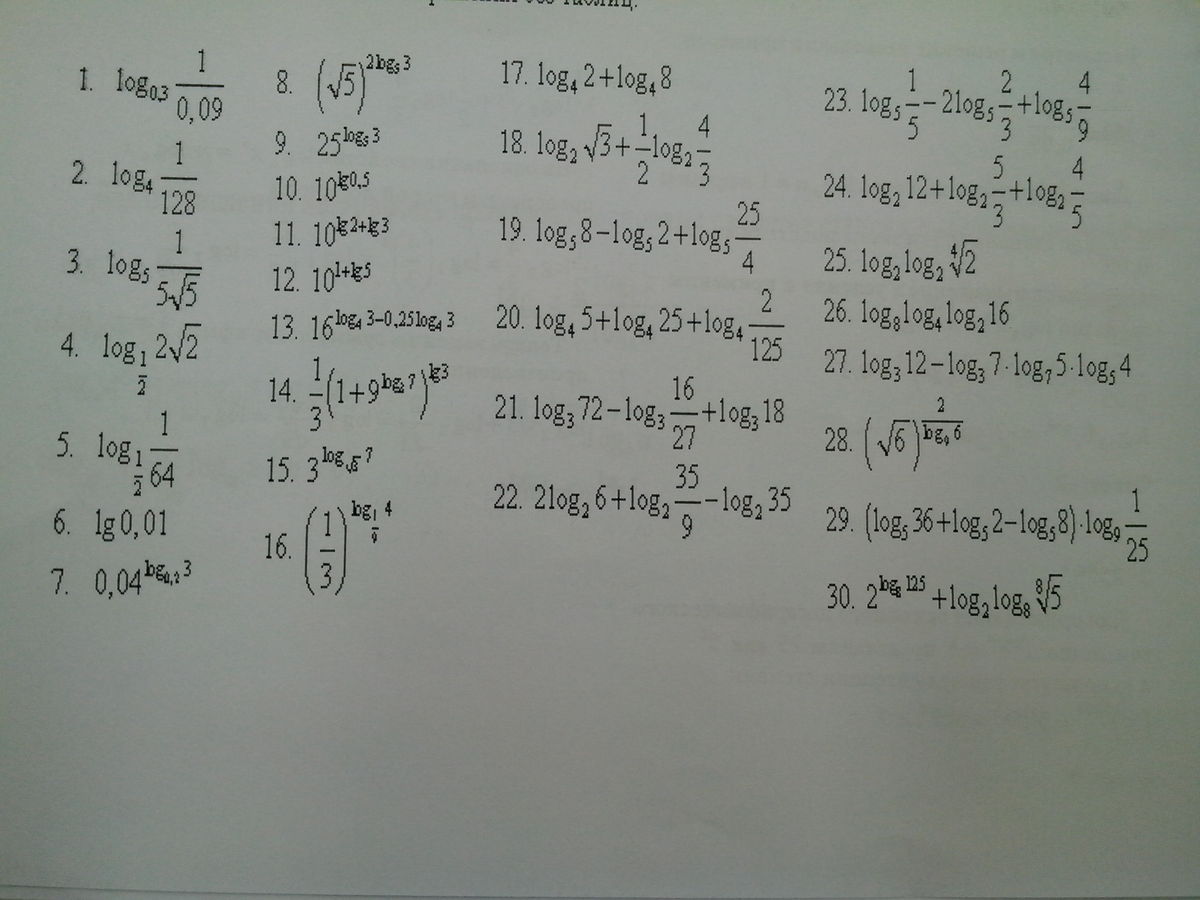 без таблиц.
1. log_{0,3} \frac{1}{0,09}
2. log_4 \frac{1}{128}
3. log_5 \frac{1}{5√5}
4. log_{\frac{1}{2}} 2√2
5. log_{\frac{1}{2}} \frac{1}{64}
6. lg 0,01
7. 0,04^{log_{0,2} 3}
8. (√5)^{2log_5 3}
9. 25^{log_5 3}
10. 10^{lg 0,5}
11. 10^{lg 2+lg 3}
12. 10^{1+lg 5}
13. 16^{log_4 3−0,25log_4 3}
14. \frac{1}{3}(1+9^{log 7})^{lg 3}
15. 3^{log 7}
16. (\frac{1}{3})^{log_{\frac{1}{9}} 4}
17. log_4 2+log_4 8
18. log_2 √3+\frac{1}{2}log_2 \frac{4}{3}
19. log_5 8−log_5 2+log_5 \frac{25}{4}
20. log_4 5+log_4 25+log_4 \frac{2}{125}
21. log_3 72−log_3 \frac{16}{27}+log_3 18
22. 2log_2 6+log_2 \frac{35}{9}−log_2 35
23. log_5 \frac{1}{5}−2log_5 \frac{2}{3}+log_5 \frac{4}{9}
24. log_2 12+log_2 \frac{5}{3}+log_2 \frac{4}{5}
25. log_2 log_2 \sqrt[4]{2}
26. log_8 log_4 log_2 16
27. log_3 12−log_3 7·log_7 5·log_5 4
28. (√6)^{\frac{2}{log_9 6}}
29. (log_5 36+log_5 2−log_5 8)·log_9 \frac{1}{25}
30. 2^{log_8 125}+log_2 log_8 \sqrt[8]{5}